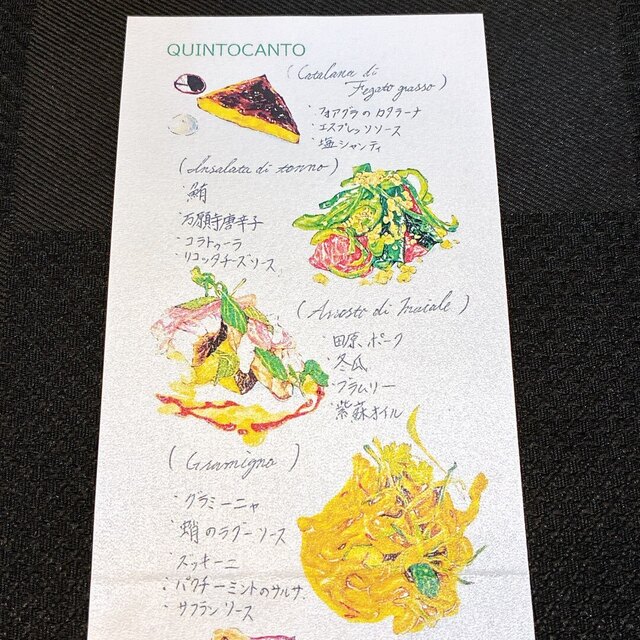 QUINTOCANTO
(Catalana di
Fegato grasso)
・フォアグラのカタラーナ
・エスプレッソソース
・塩シャンティ
(Insalata di tonno)
・鮪
・万願寺唐辛子
・コラトゥーラ
・リコッタチーズソース
(Arrosto di maiale)
・田原ポーク
・冬瓜
・ブラムリー
・紫蘇オイル
(Gramigna)
・グラミーニャ
・蛸のラグーソース
・ズッキーニ
・パクチーミントのサルサ
・サフランソース